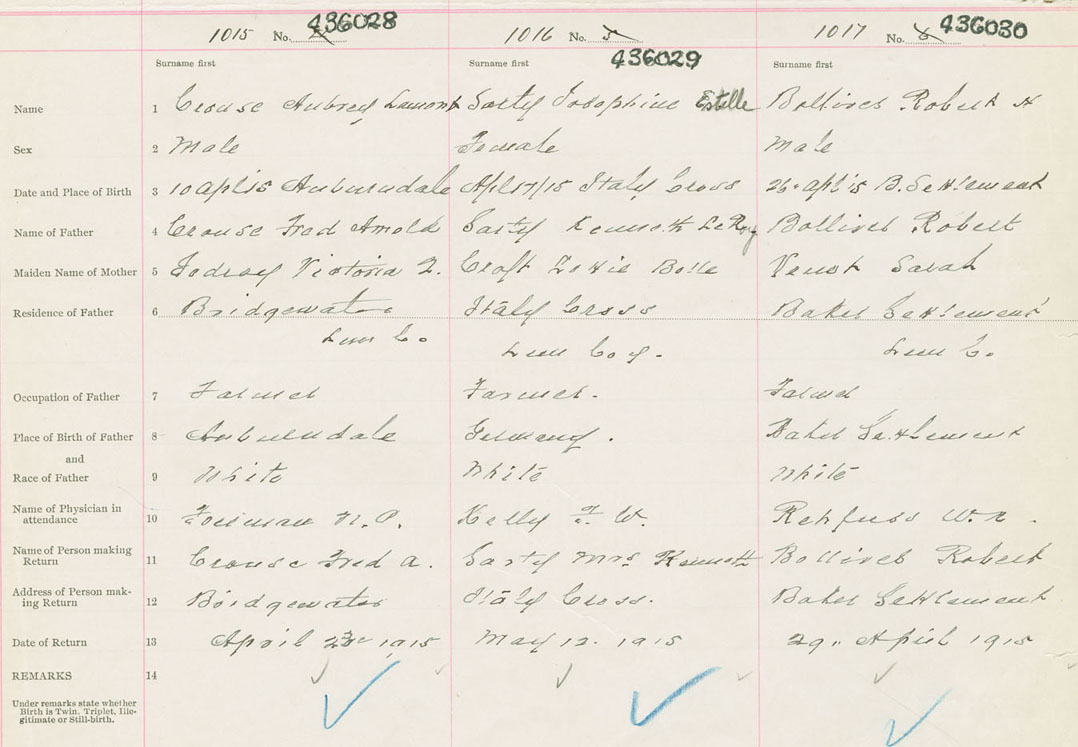 1015 No. 5 436028 1016 No. 5 436029 1017 No. 6 436030
Surname first Surname first Surname first
Name 1 Crouse Aubrey Lamont Sarty Josephine Estelle Bolliver Robert H
Sex 2 Male Female Male
Date and Place of Birth 3 10 Apl 15 Auburndale Apl 17/15 Italy Cross 26" Apl 15 B. Settlement
Name of Father 4 Crouse Fred Arnold Sarty Kenneth LeRoy Bolliver Robert
Maiden Name of Mother 5 Victoria Croft Belle Sarah
Residence of Father 6 Bridgewater Italy Cross Baker Settlement
Lun Co. Lun Coy. Lun Co.
Occupation of Father 7 Farmer Farmer. Farmer
Place of Birth of Father 8 Auburndale Germany. Baker Settlement
and
Race of Father 9 White White White
Name of Physician in
attendance 10 N. P. Kelly F. W. Rehfuss W. N.
Name of Person making
Return 11 Crouse Fred A. Sarty Mrs Kenneth Bolliver Robert
Address of Person mak-
ing Return 12 Bridgewater Italy Cross. Baker Settlement
Date of Return 13 April 23rd 1915 May 12. 1915 29" April 1915
REMARKS 14
Under remarks state whether
Birth is Twin, Triplet, Ille-
gitimate or Still-birth.